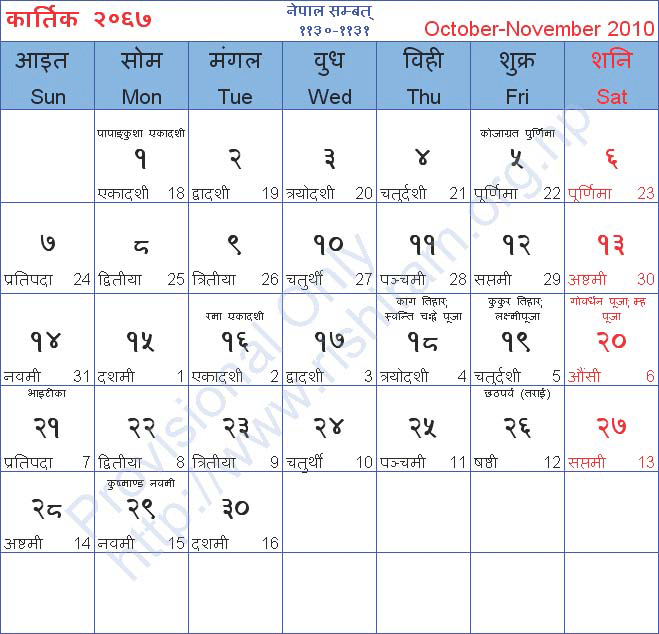 कार्तिक २०६७
नेपाल सम्बत्
११३०-११३१
October-November 2010
आइत सोम मंगल वुध विही शुक्र शनि
Sun Mon Tue Wed Thu Fri Sat
पापाङ्कुशा एकादशी कोजाग्रत पुर्णिमा
१ २ ३ ४ ५ ६
एकादशी 18 द्वादशी 19 त्रयोदशी 20 चतुर्दशी 21 पूर्णिमा 22 पूर्णिमा 23
७ ८ ९ १० ११ १२ १३
प्रतिपदा 24 द्वितीया 25 त्रितीया 26 चतुर्थी 27 पञ्चमी 28 सप्तमी 29 अष्टमी 30
रमा एकादशी काग तिहार; कुकुर तिहार; गोवर्धन पूजा; म्ह
लक्ष्मीपूजा पूजा
१४ १५ १६ १७ १८ १९ २०
नवमी 31 दशमी 1 एकादशी 2 द्वादशी 3 त्रयोदशी 4 चतुर्दशी 5 औंसी 6
भाइटीका छठपर्व (तराई)
२१ २२ २३ २४ २५ २६ २७
प्रतिपदा 7 द्वितीया 8 त्रितीया 9 चतुर्थी 10 पञ्चमी 11 षष्ठी 12 सप्तमी 13
कुष्माण्ड नवमी
२८ २९ ३०
अष्टमी 14 नवमी 15 दशमी 16
Provisional Only
http://www.rishiram.org.np